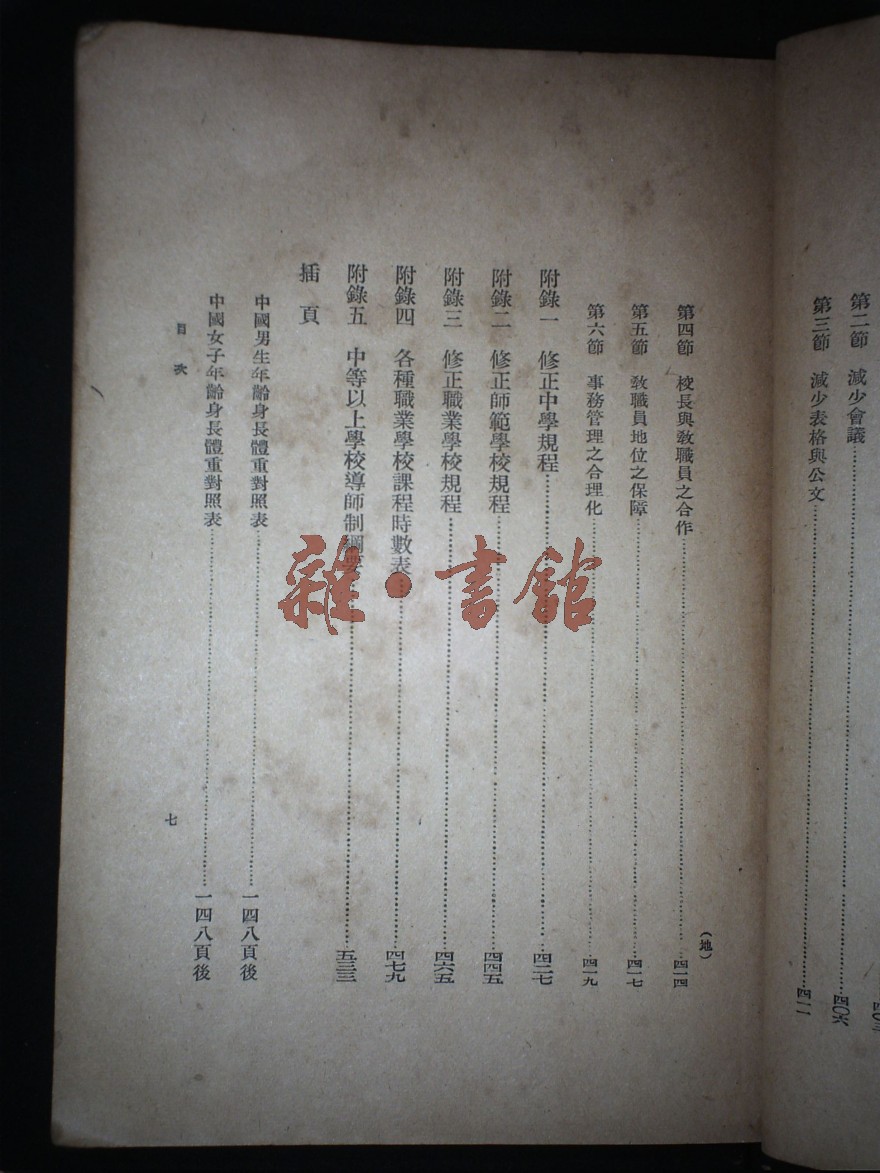 第二節　減少會議……四〇六
第三節　減少表格與公文……四一一
（地）
第四節　校長與教職員之合作……四一四
第五節　教職員地位之保障……四一七
第六節　事務管理之合理化……四一九
附錄一　修正中學規程……四二七
附錄二　修正師範學校規程……四四五
附錄三　修正職業學校規程……四六五
附錄四　各種職業學校課程時數表……四七九
附錄五　中等以上學校導師制綱要……五三三
插　頁
中國男生年齡身長體重對照表……一四八頁後
中國女子年齡身長體重對照表……一四八頁後
目　次
七
雜·書館